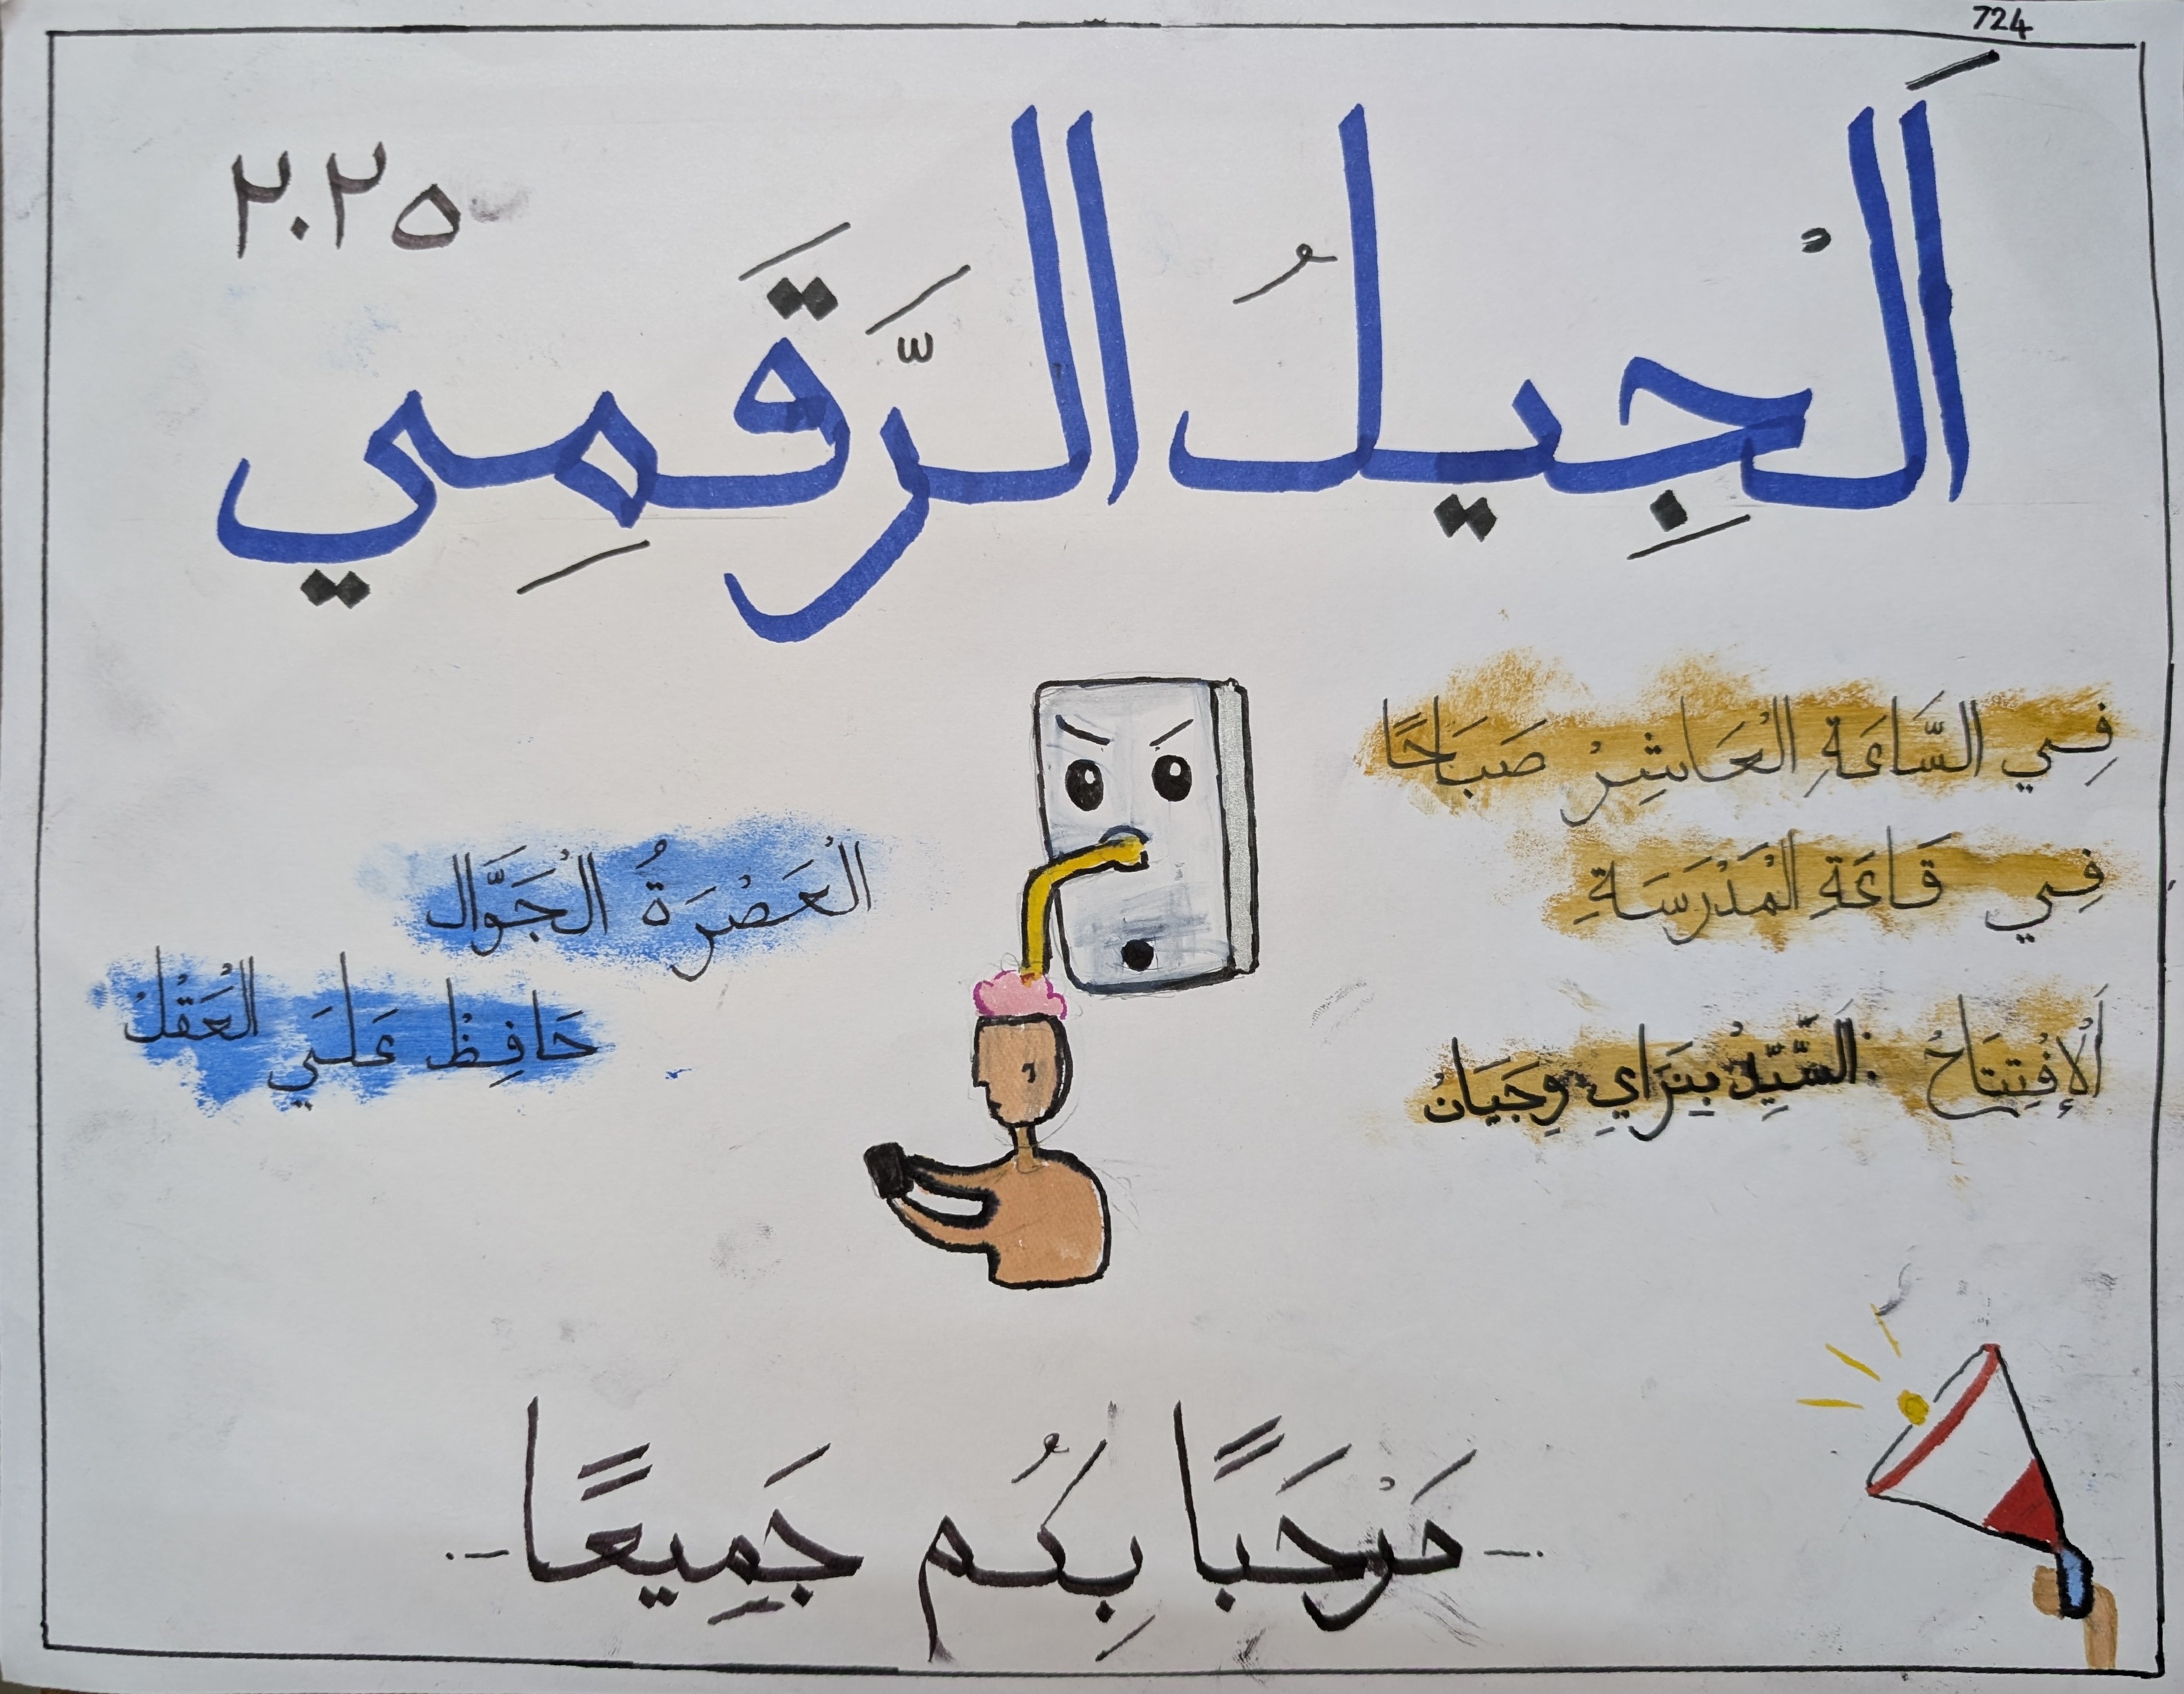 724
اَلْجِيلُ الرَّقَمِي
٢٠٢٥
فِي السَّاعَةِ الْعَاشِرْ صَبَاحًا
فِي قَاعَةِ الْمَدْرَسَةِ
اَلْإِفْتِتَاحْ : اَلسَّيِّدْ بِنَرَايِ وِجَيَانْ
الْعَصْرَةُ الْجَوَّال
حَافِظْ عَلَي الْعَقْلْ
مَرْحَبًا بِكُم جَمِيعًا